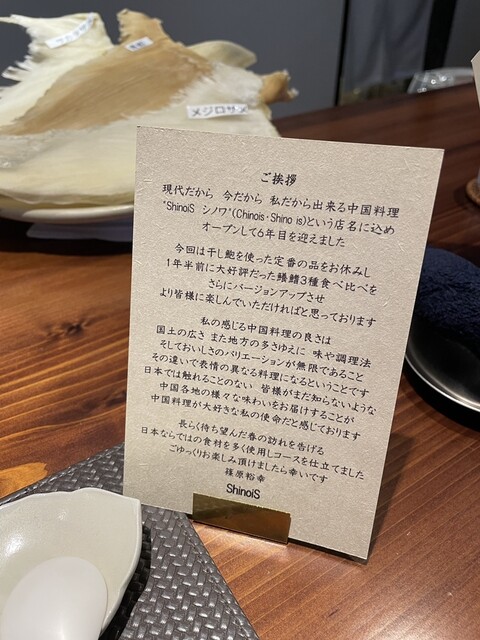 メジロザメ
ご挨拶
現代だから 今だから 私だから出来る中国料理
"ShinoiS シノワ"(Chinois・Shino is)という店名に込め
オープンして6年目を迎えました
今回は干し鮑を使った定番の品をお休みし
1年半前に大好評だった鱶鰭3種食べ比べを
さらにバージョンアップさせ
より皆様に楽しんでいただければと思っております
私の感じる中国料理の良さは
国土の広さ また地方の多さゆえに 味や調理法
そしておいしさのバリエーションが無限であること
その違いで表情の異なる料理になるということです
日本では触れることのない 皆様がまだ知らないような
中国各地の様々な味わいをお届けすることが
中国料理が大好きな私の使命だと感じております
長らく待ち望んだ春の訪れを告げる
日本ならではの食材を多く使用しコースを仕立てました
ごゆっくりお楽しみ頂けましたら幸いです
篠原裕幸
ShinoiS